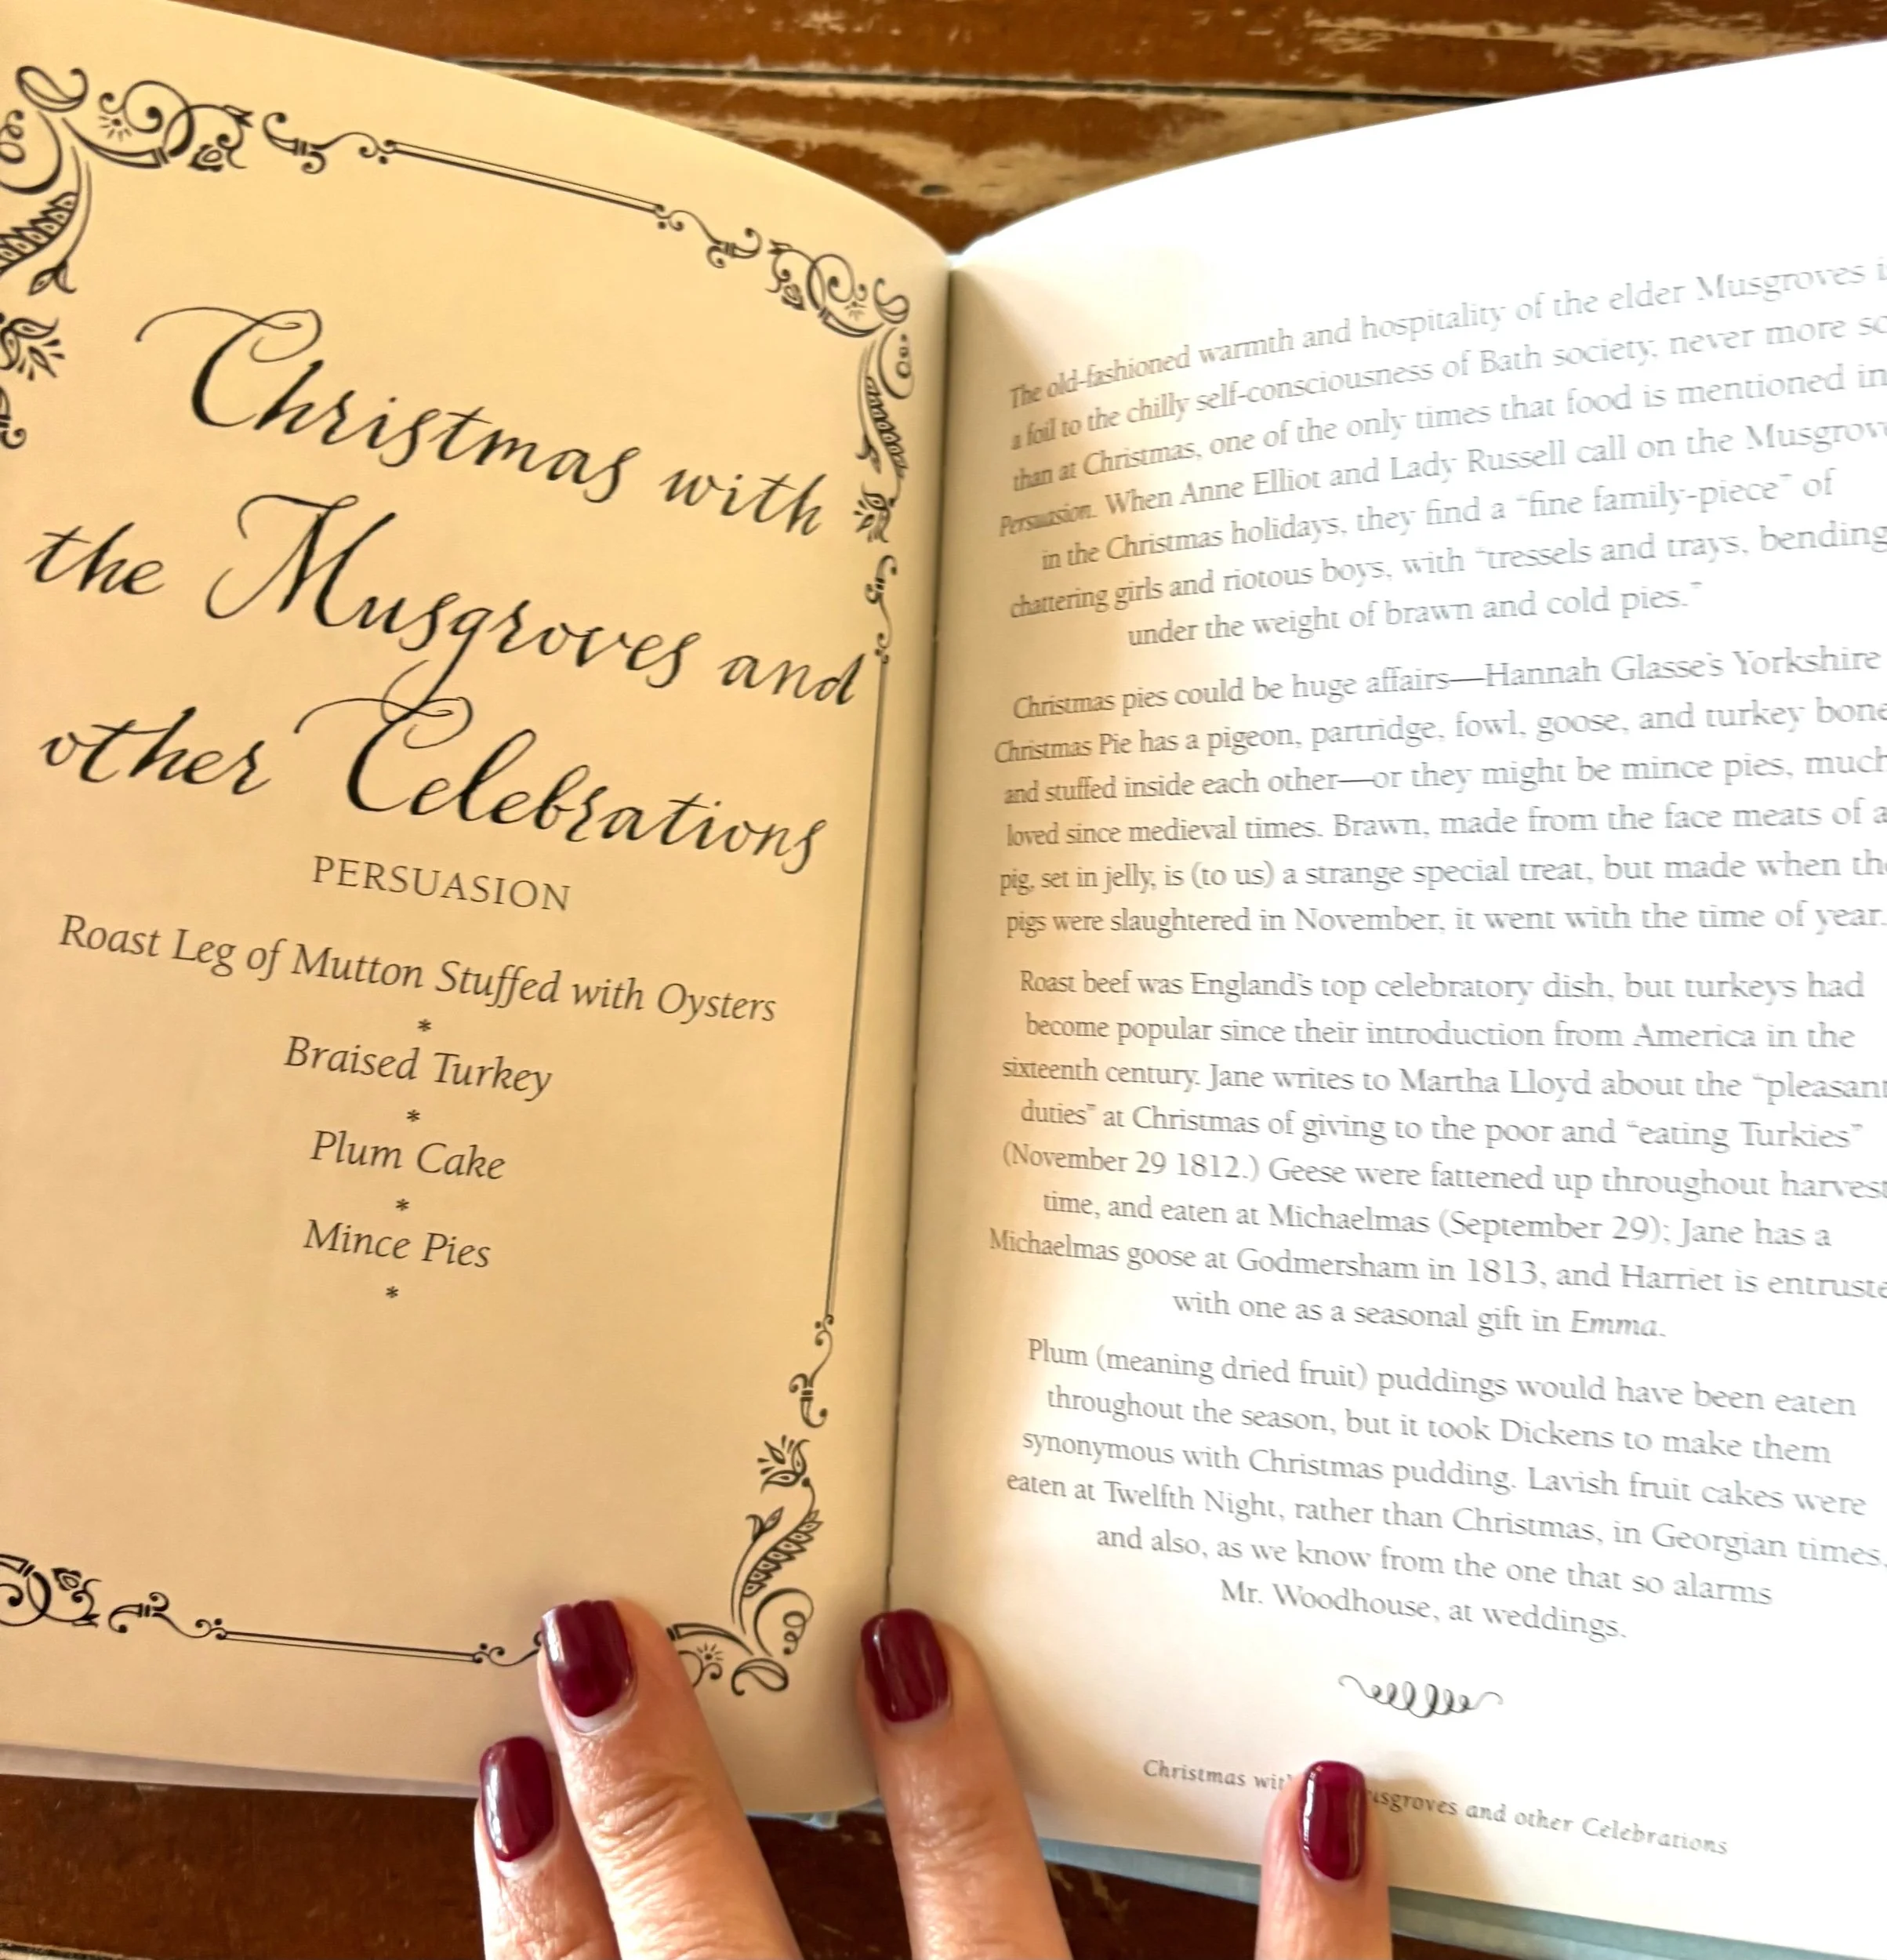 Christmas with
the Musgroves and
other Celebrations
PERSUASION
Roast Leg of Mutton Stuffed with Oysters
*
Braised Turkey
*
Plum Cake
*
Mince Pies
*
The old-fashioned warmth and hospitality of the elder Musgroves
a foil to the chilly self-consciousness of Bath society, never more so
than at Christmas, one of the only times that food is mentioned in
Persuasion. When Anne Elliot and Lady Russell call on the
in the Christmas holidays, they find a “fine family-piece” of
chattering girls and riotous boys, with “tressels and trays, bending
under the weight of brawn and cold pies.”
Christmas pies could be huge affairs—Hannah Glasse's Yorkshire
Christmas Pie has a pigeon, partridge, fowl, goose, and turkey
and stuffed inside each other—or they might be mince pies, much
loved since medieval times. Brawn, made from the face meats of a
pig, set in jelly, is (to us) a strange special treat, but made when the
pigs were slaughtered in November, it went with the time of year.
Roast beef was England's top celebratory dish, but turkeys had
become popular since their introduction from America in the
sixteenth century. Jane writes to Martha Lloyd about the “pleasant
duties” at Christmas of giving to the poor and “eating Turkies”
(November 29 1812.) Geese were fattened up throughout harvest
time, and eaten at Michaelmas (September 29); Jane has a
Michaelmas goose at Godmersham in 1813, and Harriet is
with one as a seasonal gift in Emma.
Plum (meaning dried fruit) puddings would have been eaten
throughout the season, but it took Dickens to make them
synonymous with Christmas pudding. Lavish fruit cakes were
eaten at Twelfth Night, rather than Christmas, in Georgian times,
and also, as we know from the one that so alarms
Mr. Woodhouse, at weddings.
Christmas and other Celebrations